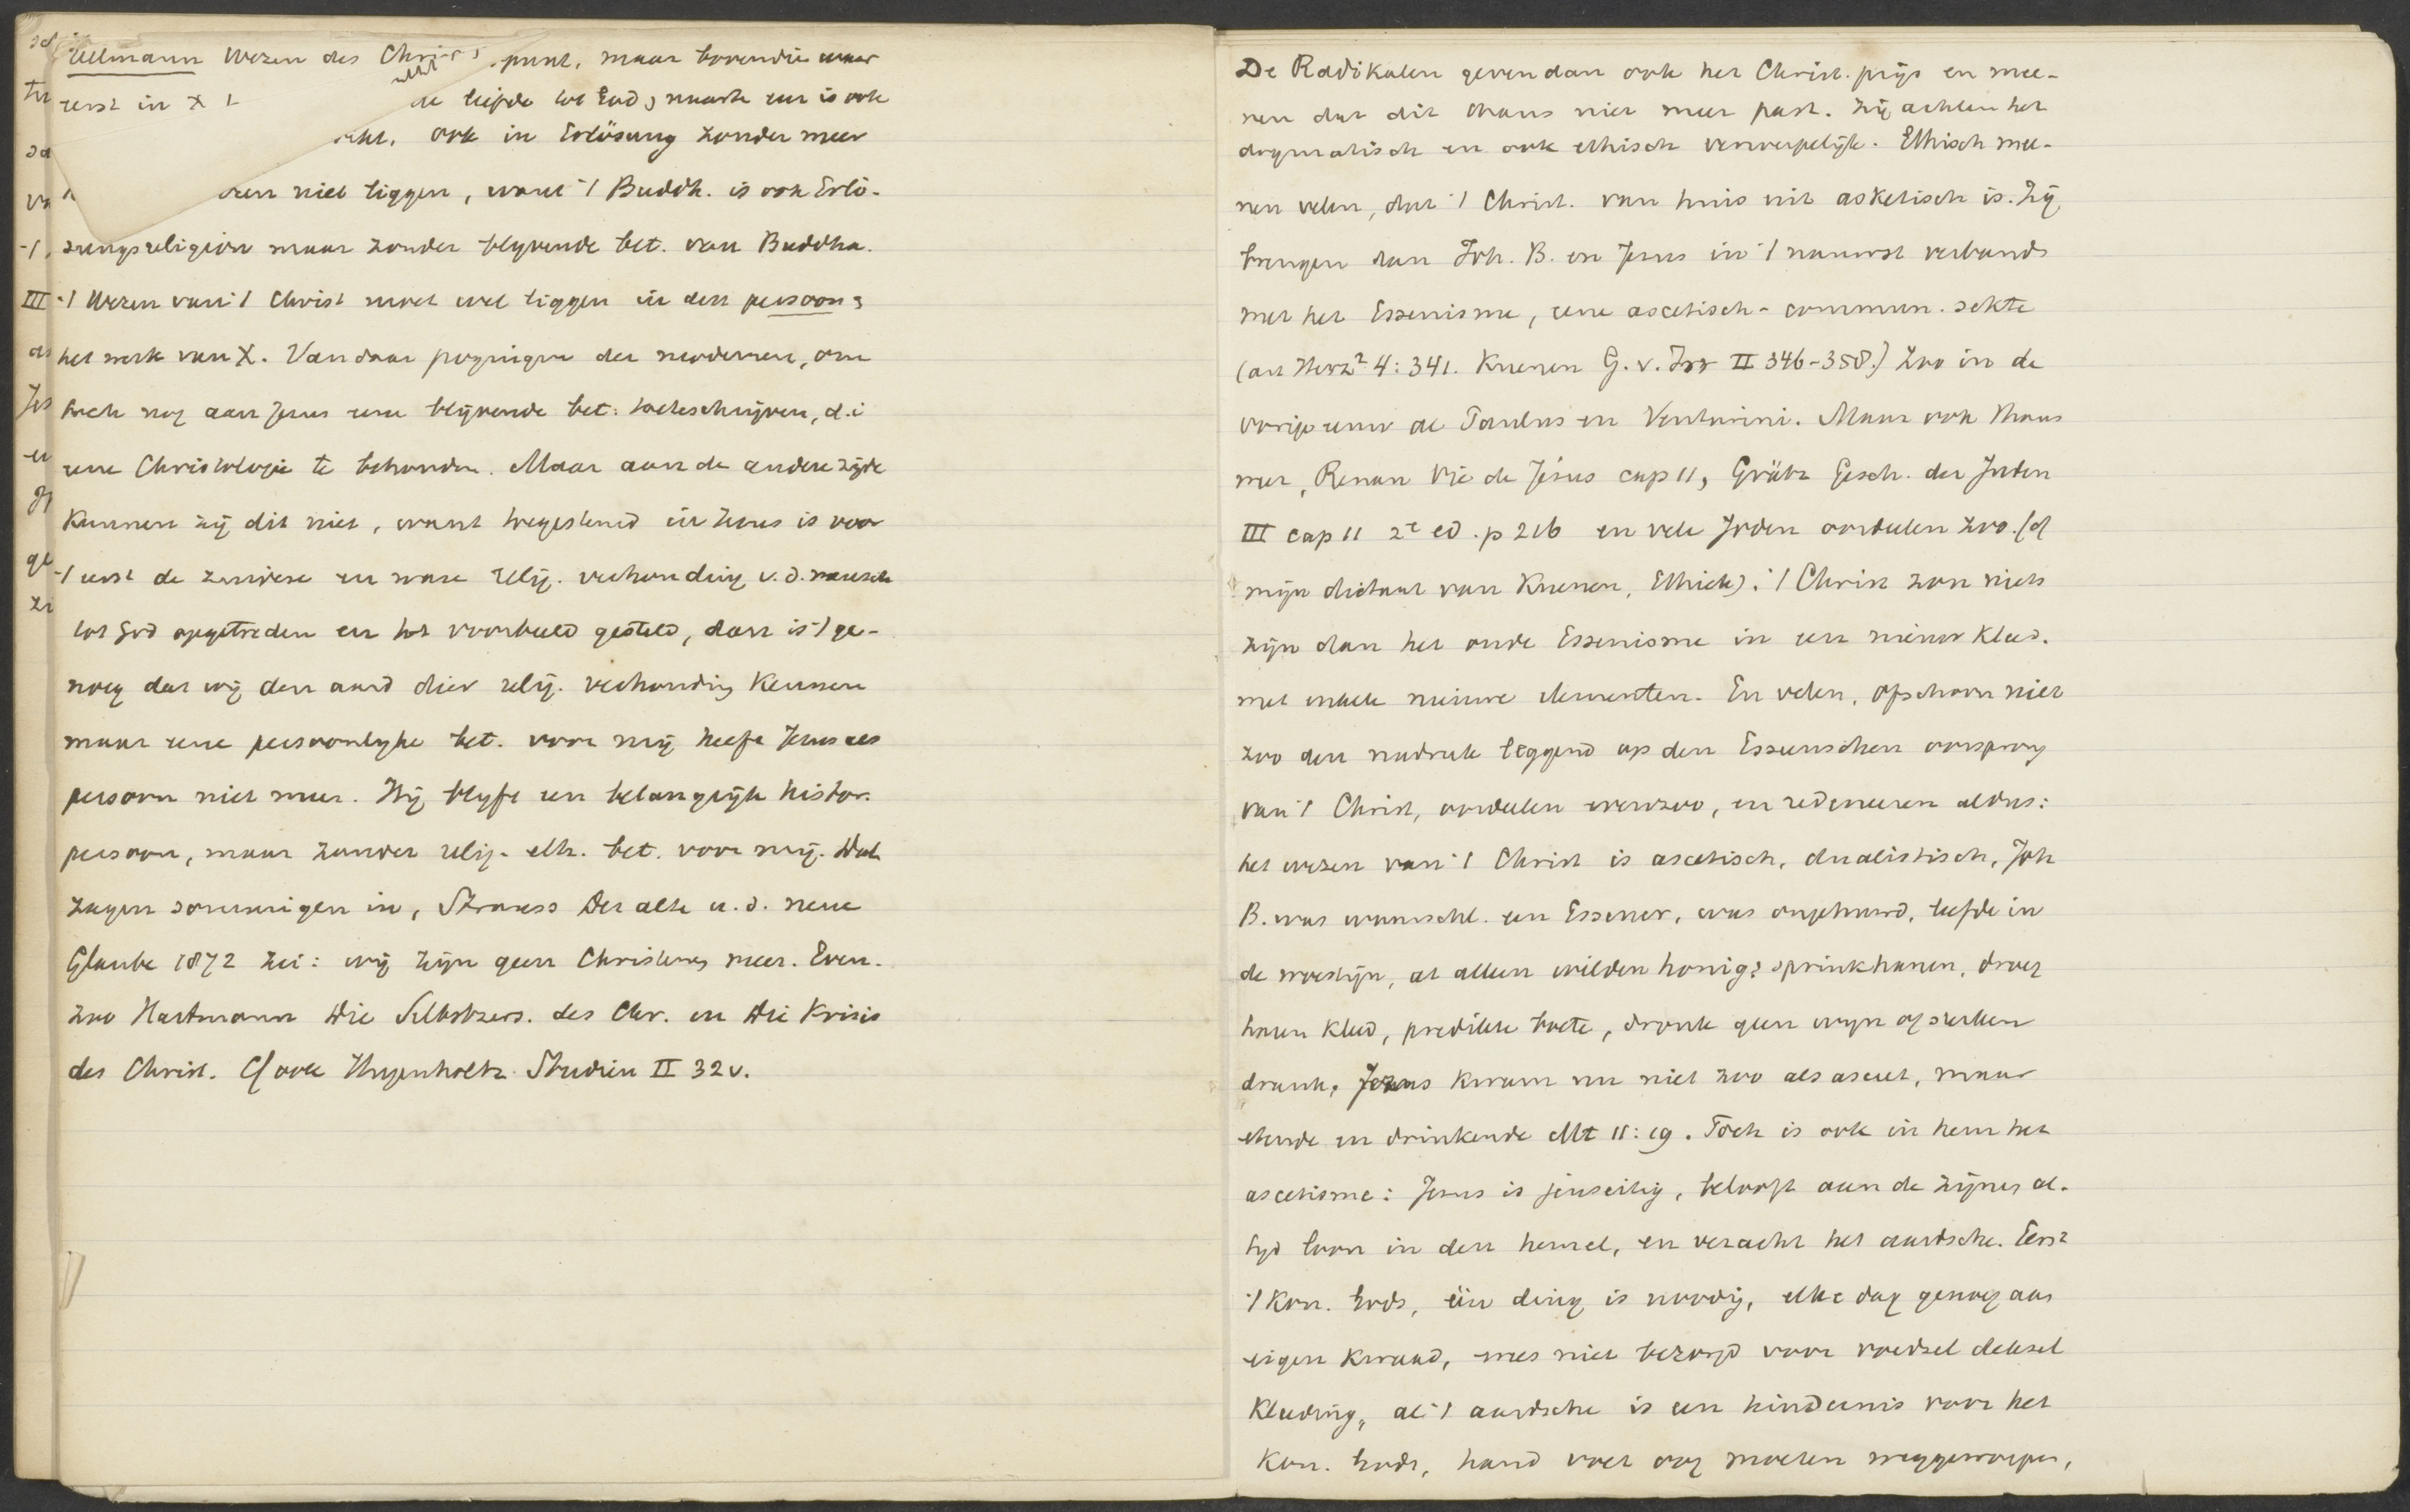 Ullmann Wezen des Christ. punt, maar bovendie
eerst in X 1 de liefde tot God, naaste een is ook
ook in Erlösung zonder meer
niet liggen, want 't Buddh. is ook Erlö-
sungsreligion maar zonder blyvende bet. van Buddha.
III 't Wezen van 't Christ moet wel liggen in den persoon &
het werk van X. Vandaar pogingen der modernen, om
toch nog aan Jesus eene blijvende bet. toeteschrijven, d.i
eene Christologie te behouden. Maar aan de andere zijde
kunnen zij dit niet, want toegestemd in Jesus is voor
't eerst de zuivere en ware relig. verhouding v. d. mensch
tot God opgetreden en tot voorbeeld gesteld, dan is 't ge-
noeg dat wij den aard dier relig. verhouding kennen
maar eene persoonlyke bet. voor mij heeft Jesus als
persoon niet meer. Hij blyft een belangrijk histor.
persoon, maar zonder relig. eth. bet. voor mij. Dat
zagen sommigen in, Strauss Der alte u. d. neue
Glaube 1872 zei: wij zijn geen Christenen meer. Even-
zoo Hartmann Die Selbstzers. des Chr. en Die Krisis
des Christ. Cf ook Hugenholtz Studien II 32v.
De Radikalen geven dan ook het Christ. prijs en mee-
nen dat dit thans niet meer past. Zij achten het
dogmatisch en ook ethisch verwerpelijk. Ethisch mee-
nen velen, dat 't Christ. van huis uit asketisch is. Zij
brengen dan Joh. B. en Jesus in 't nauwst verband
met het Essenisme, eene ascetisch-commun. sekte
(art Herz² 4:341. Kuenen G. v. Isr II 346-358.) Zoo in de
vorige eeuw al Paulus en Venturini. Maar ook thans
meer, Renan Vie de Jésus cap 11, Grätz Gesch. der Juden
III cap 11 2e ed. p 216 en vele Joden oordeelen zoo. (cf
mijn dictaat van Kuenen, Ethiek). 't Christ zou niets
zijn dan het oude Essenisme in een nieuw kleed.
met enkele nieuwe elementen. En velen, ofschoon niet
zoo den nadruk leggend op den Esseenschen oorsprong
van 't Christ, oordeelen evenzoo, en redeneeren aldus:
het wezen van 't Christ is ascetisch, dualistisch, Joh
B. was waarschl. een Essener, was ongehuwd, leefde in
de woestijn, at alleen wilden honig & sprinkhanen, droeg
haren kleed, predikte boete, dronk geen wyn of sterken
drank, Jezus kwam nu niet zoo als asceet, maar
etende en drinkende Mt 11:19. Toch is ook in hem het
ascetisme: Jesus is jenseitig, belooft aan de zijnen al-
tyd loon in den hemel, en veracht het aardsche. Eerst
't Kon. Gods, één ding is noodig, elke dag genoeg aan
eigen kwaad, wees niet bezorgd voor voedsel deksel
kleeding, al 't aardsche is een hindernis voor het
Kon. Gods, hand voet oog moeten weggeworpen,